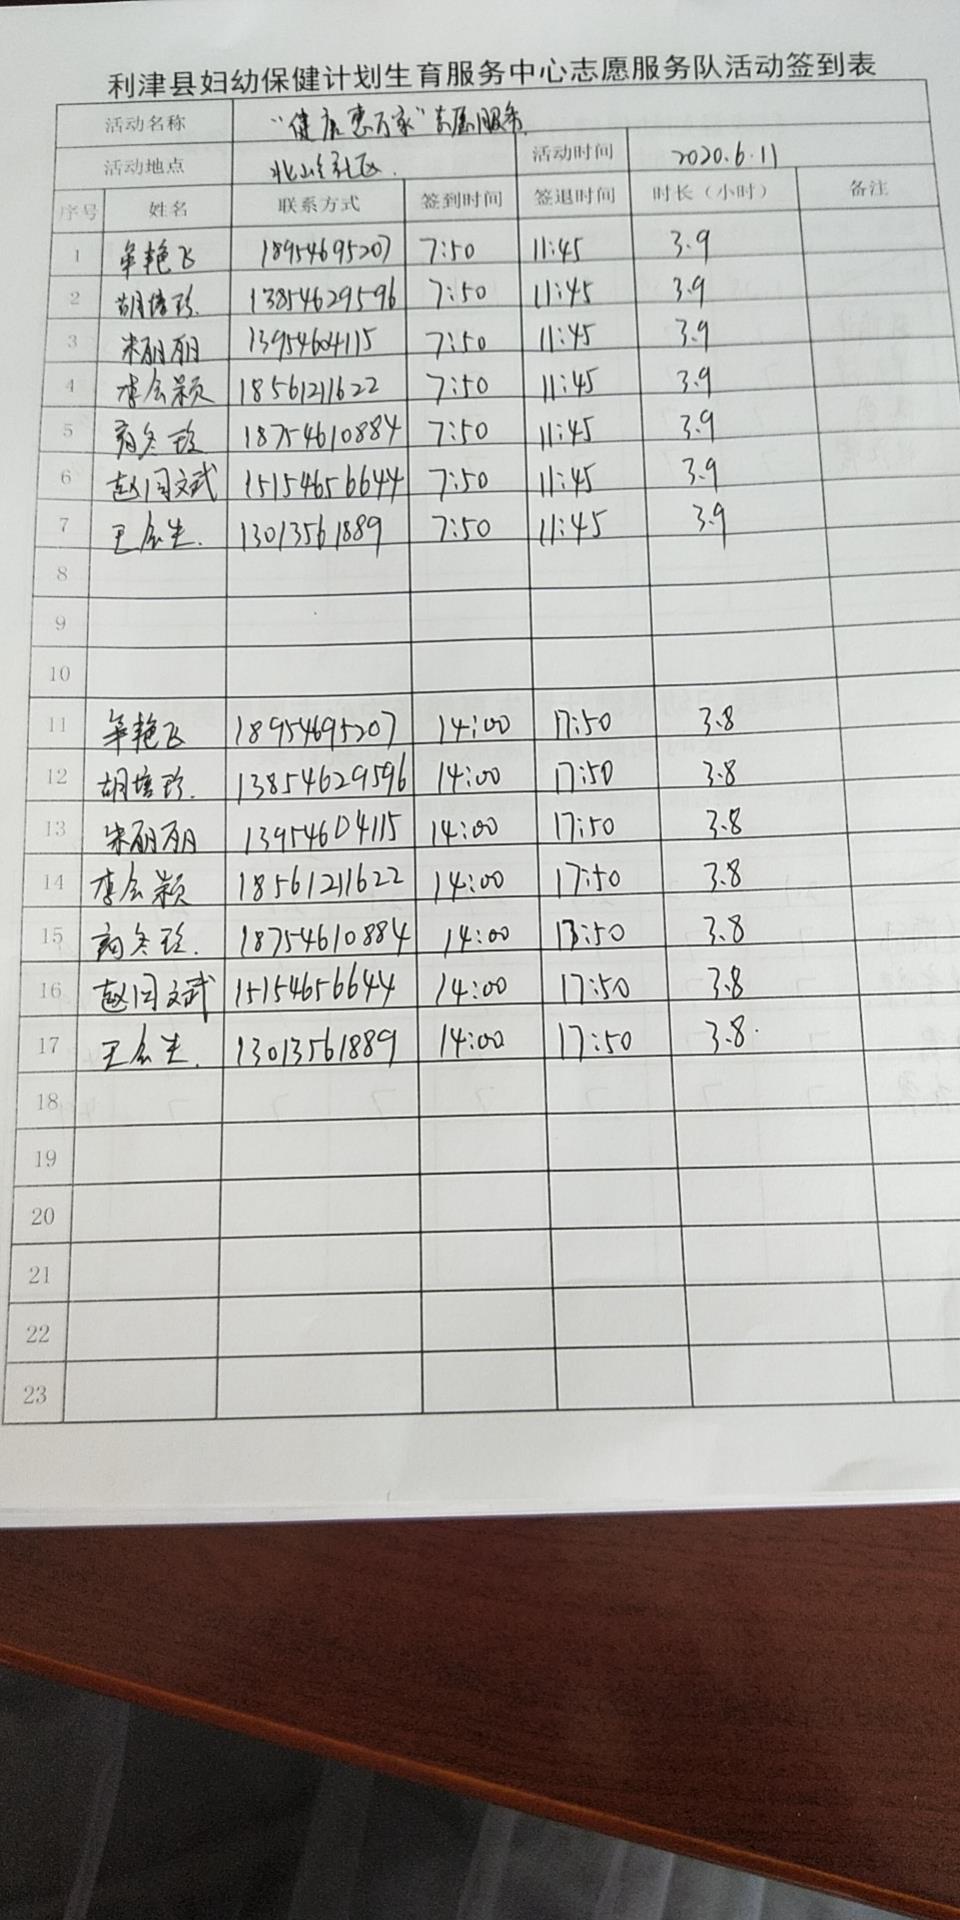 利津县妇幼保健计划生育服务中心志愿服务队活动签到表
活动名称 “健康惠万家”志愿服务
活动地点 北岭社区 活动时间 2020.6.11
序号 姓名 联系方式 签到时间 签退时间 时长（小时） 备注
1 牟艳飞 18954695207 7:50 11:45 3.9
2 胡培珍 13854629596 7:50 11:45 3.9
3 宋丽丽 13954604115 7:50 11:45 3.9
4 李会颖 18561211622 7:50 11:45 3.9
5 18754610884 7:50 11:45 3.9
6 赵闫文武 15154656644 7:50 11:45 3.9
7 13013561889 7:50 11:45 3.9
8
9
10
11 牟艳飞 18954695207 14:00 17:50 3.8
12 胡培珍 13854629596 14:00 17:50 3.8
13 宋丽丽 13954604115 14:00 17:50 3.8
14 李会颖 18561211622 14:00 17:50 3.8
15 18754610884 14:00 17:50 3.8
16 赵闫文武 15154656644 14:00 17:50 3.8
17 13013561889 14:00 17:50 3.8
18
19
20
21
22
23